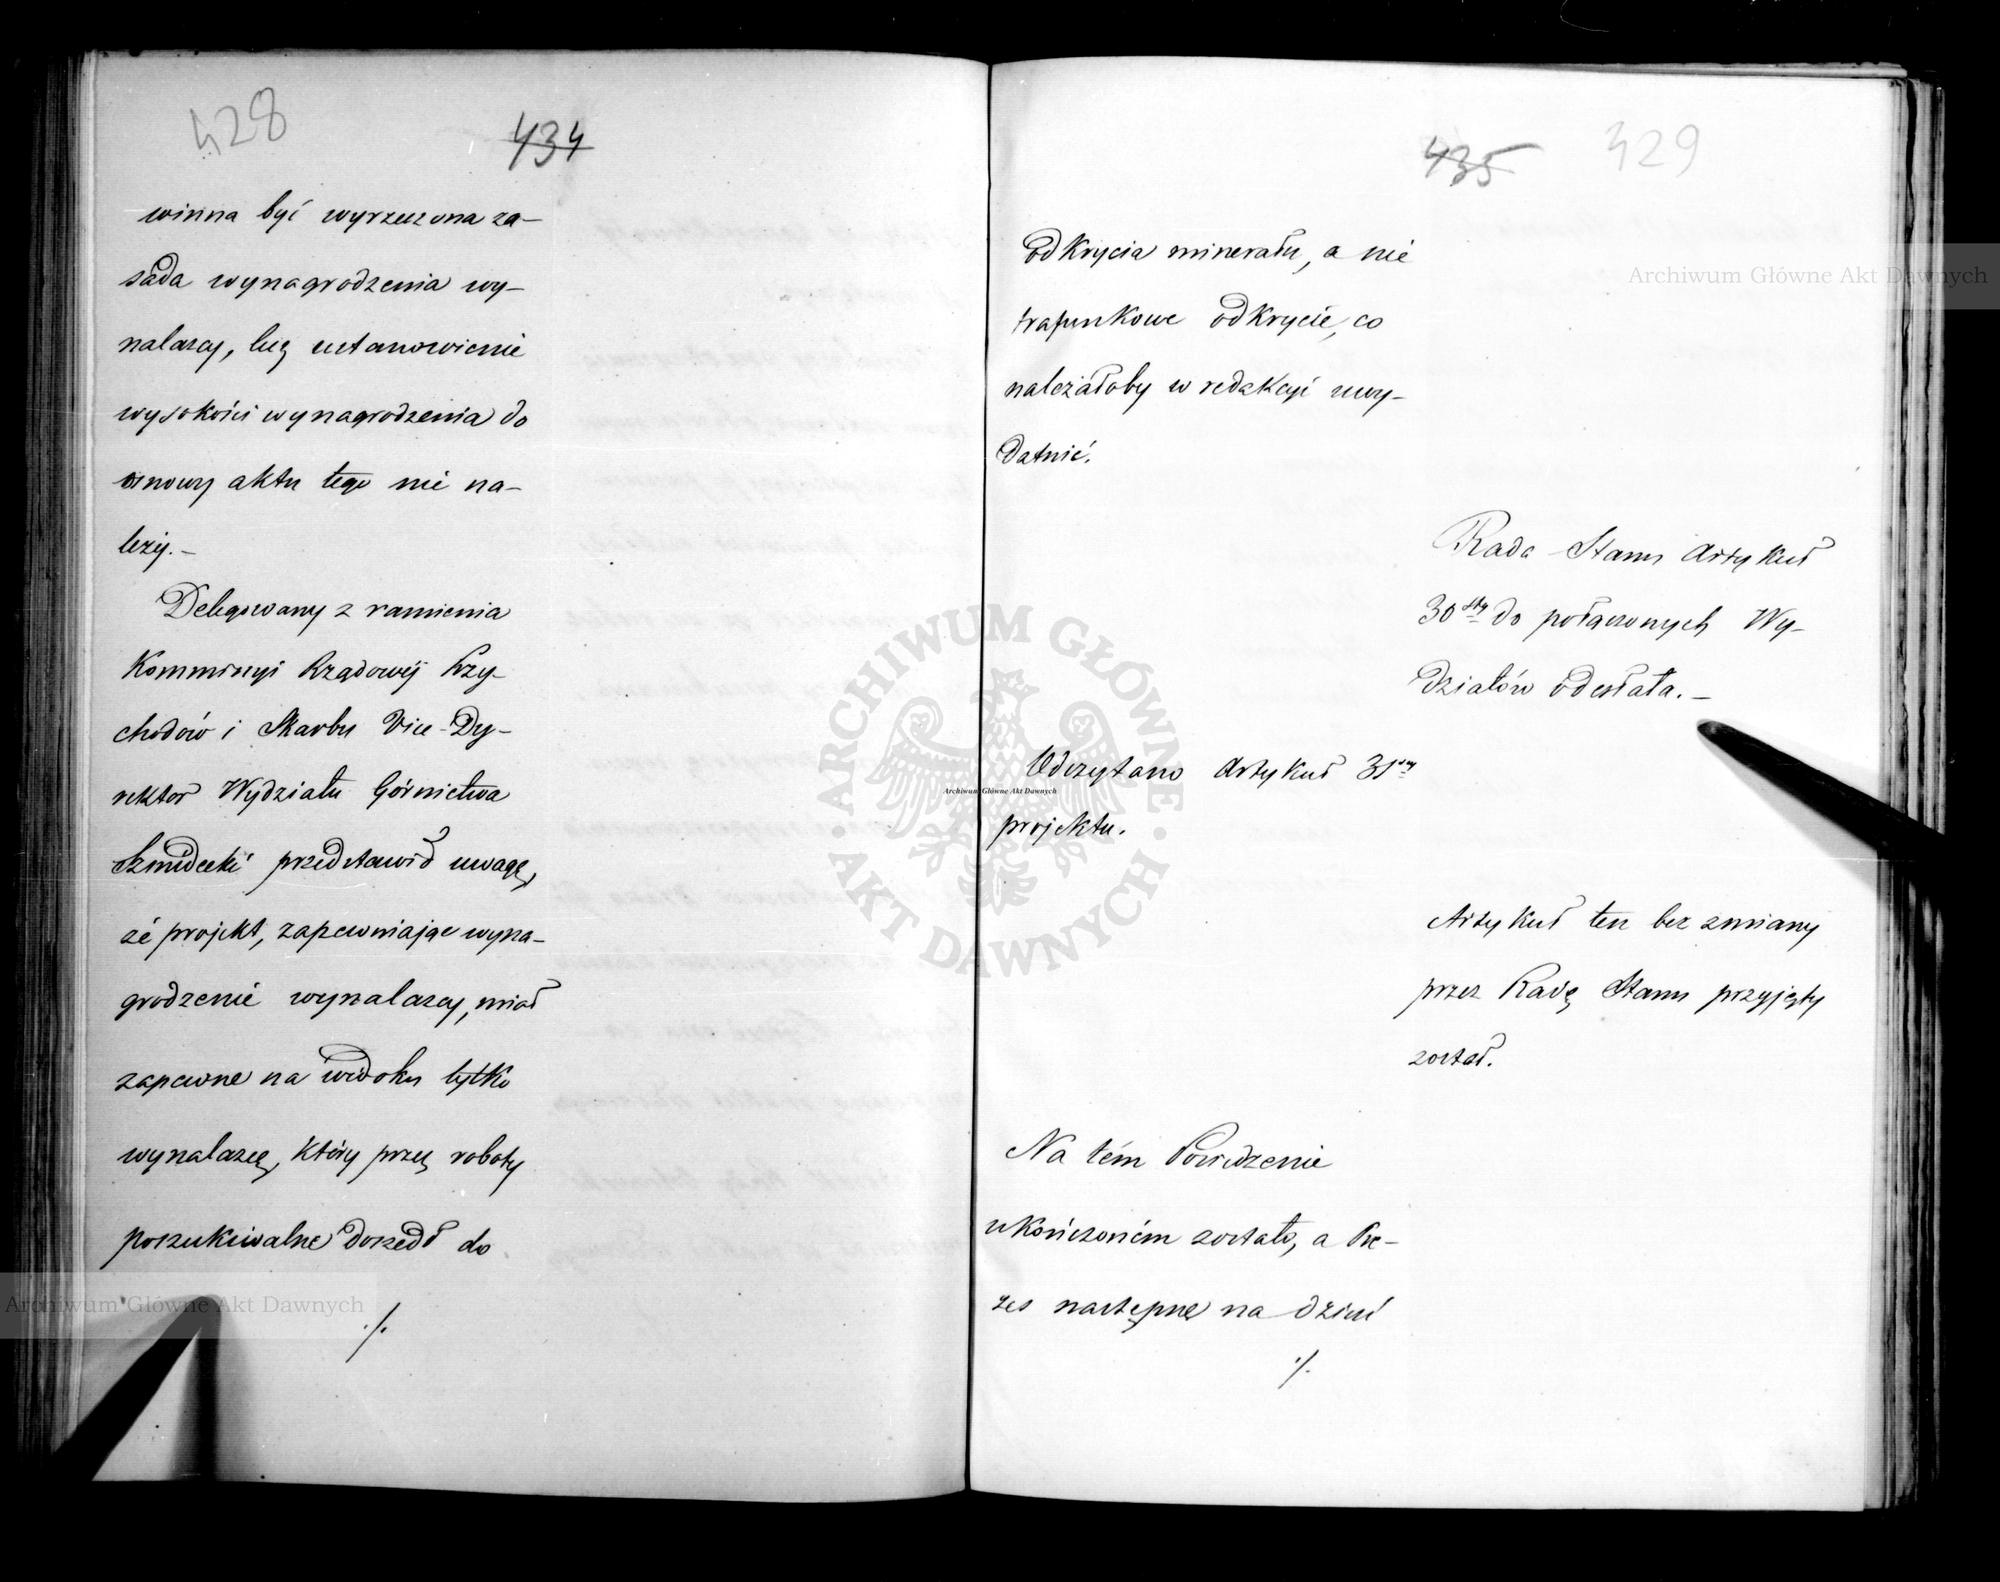 428
434
winna być wyrzeczona za-
sada wynagrodzenia wy-
nalazcy, lecz ustanowienie
wysokości wynagrodzenia do
osnowy aktu tego nie na-
leży.-
Delegowany z ramienia
Kommissyi Rządowéj Przy-
chodów i Skarbu Vice-Dy-
rektor Wydziału Górnictwa
przedstawił uwagę,
że projekt, zapewniając wyna-
grodzenie wynalazcy, miał
zapewne na widoku tylko
wynalazcę, który przez roboty
poszukiwalne doszedł do
./.
435
429
odkrycia minerału, a nie
trafunkowe odkrycie, co
należałoby w redakcyi uwy-
datnić.
Rada Stanu Artykuł
30sty do połączonych Wy-
działów odesłała.-
Odczytano Artykuł 31szy
projektu.
Artykuł ten bez zmiany
przez Radę Stanu przyjęty
został.
Na tém Posiedzenie
ukończoném zostało, a Pre-
zes następne na dzień
./.
Archiwum Główne Akt Dawnych
ARCHIWUM GŁÓWNE
AKT DAWNYCH
Archiwum Główne Akt Dawnych
Archiwum Główne Akt Dawnych